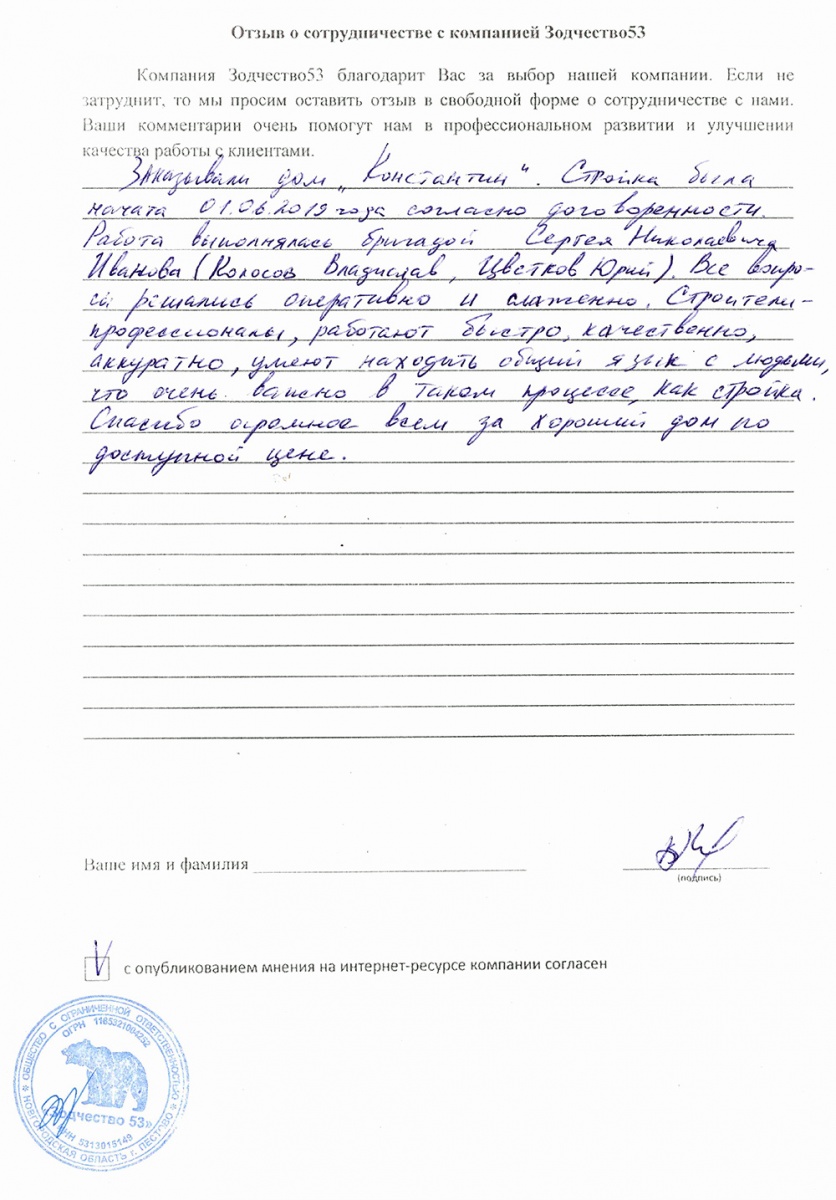 Отзыв о сотрудничестве с компанией Зодчество53
Компания Зодчество53 благодарит Вас за выбор нашей компании. Если не
затруднит, то мы просим оставить отзыв в свободной форме о сотрудничестве с нами.
Ваши комментарии очень помогут нам в профессиональном развитии и улучшении
качества работы с клиентами.
Заказывали дом „Константин“. Стройка была
начата 01.06.2019 года согласно договоренности.
Работа выполнялась бригадой Сергея Николаевича
Иванова (Колосов Владислав, Цветков Юрий). Все вопро-
сы решались оперативно и слаженно. Строители-
профессионалы, работают быстро, качественно,
аккуратно, умеют находить общий язык с людьми,
что очень важно в таком процессе, как стройка.
Спасибо огромное всем за хороший дом по
доступной цене.
Ваше имя и фамилия
(подпись)
с опубликованием мнения на интернет-ресурсе компании согласен
ОБЩЕСТВО С ОГРАНИЧЕННОЙ ОТВЕТСТВЕННОСТЬЮ
ОГРН 1165321004232
Зодчество 53»
ИНН 5313015149
НОВГОРОДСКАЯ ОБЛАСТЬ г. ПЕСТОВО